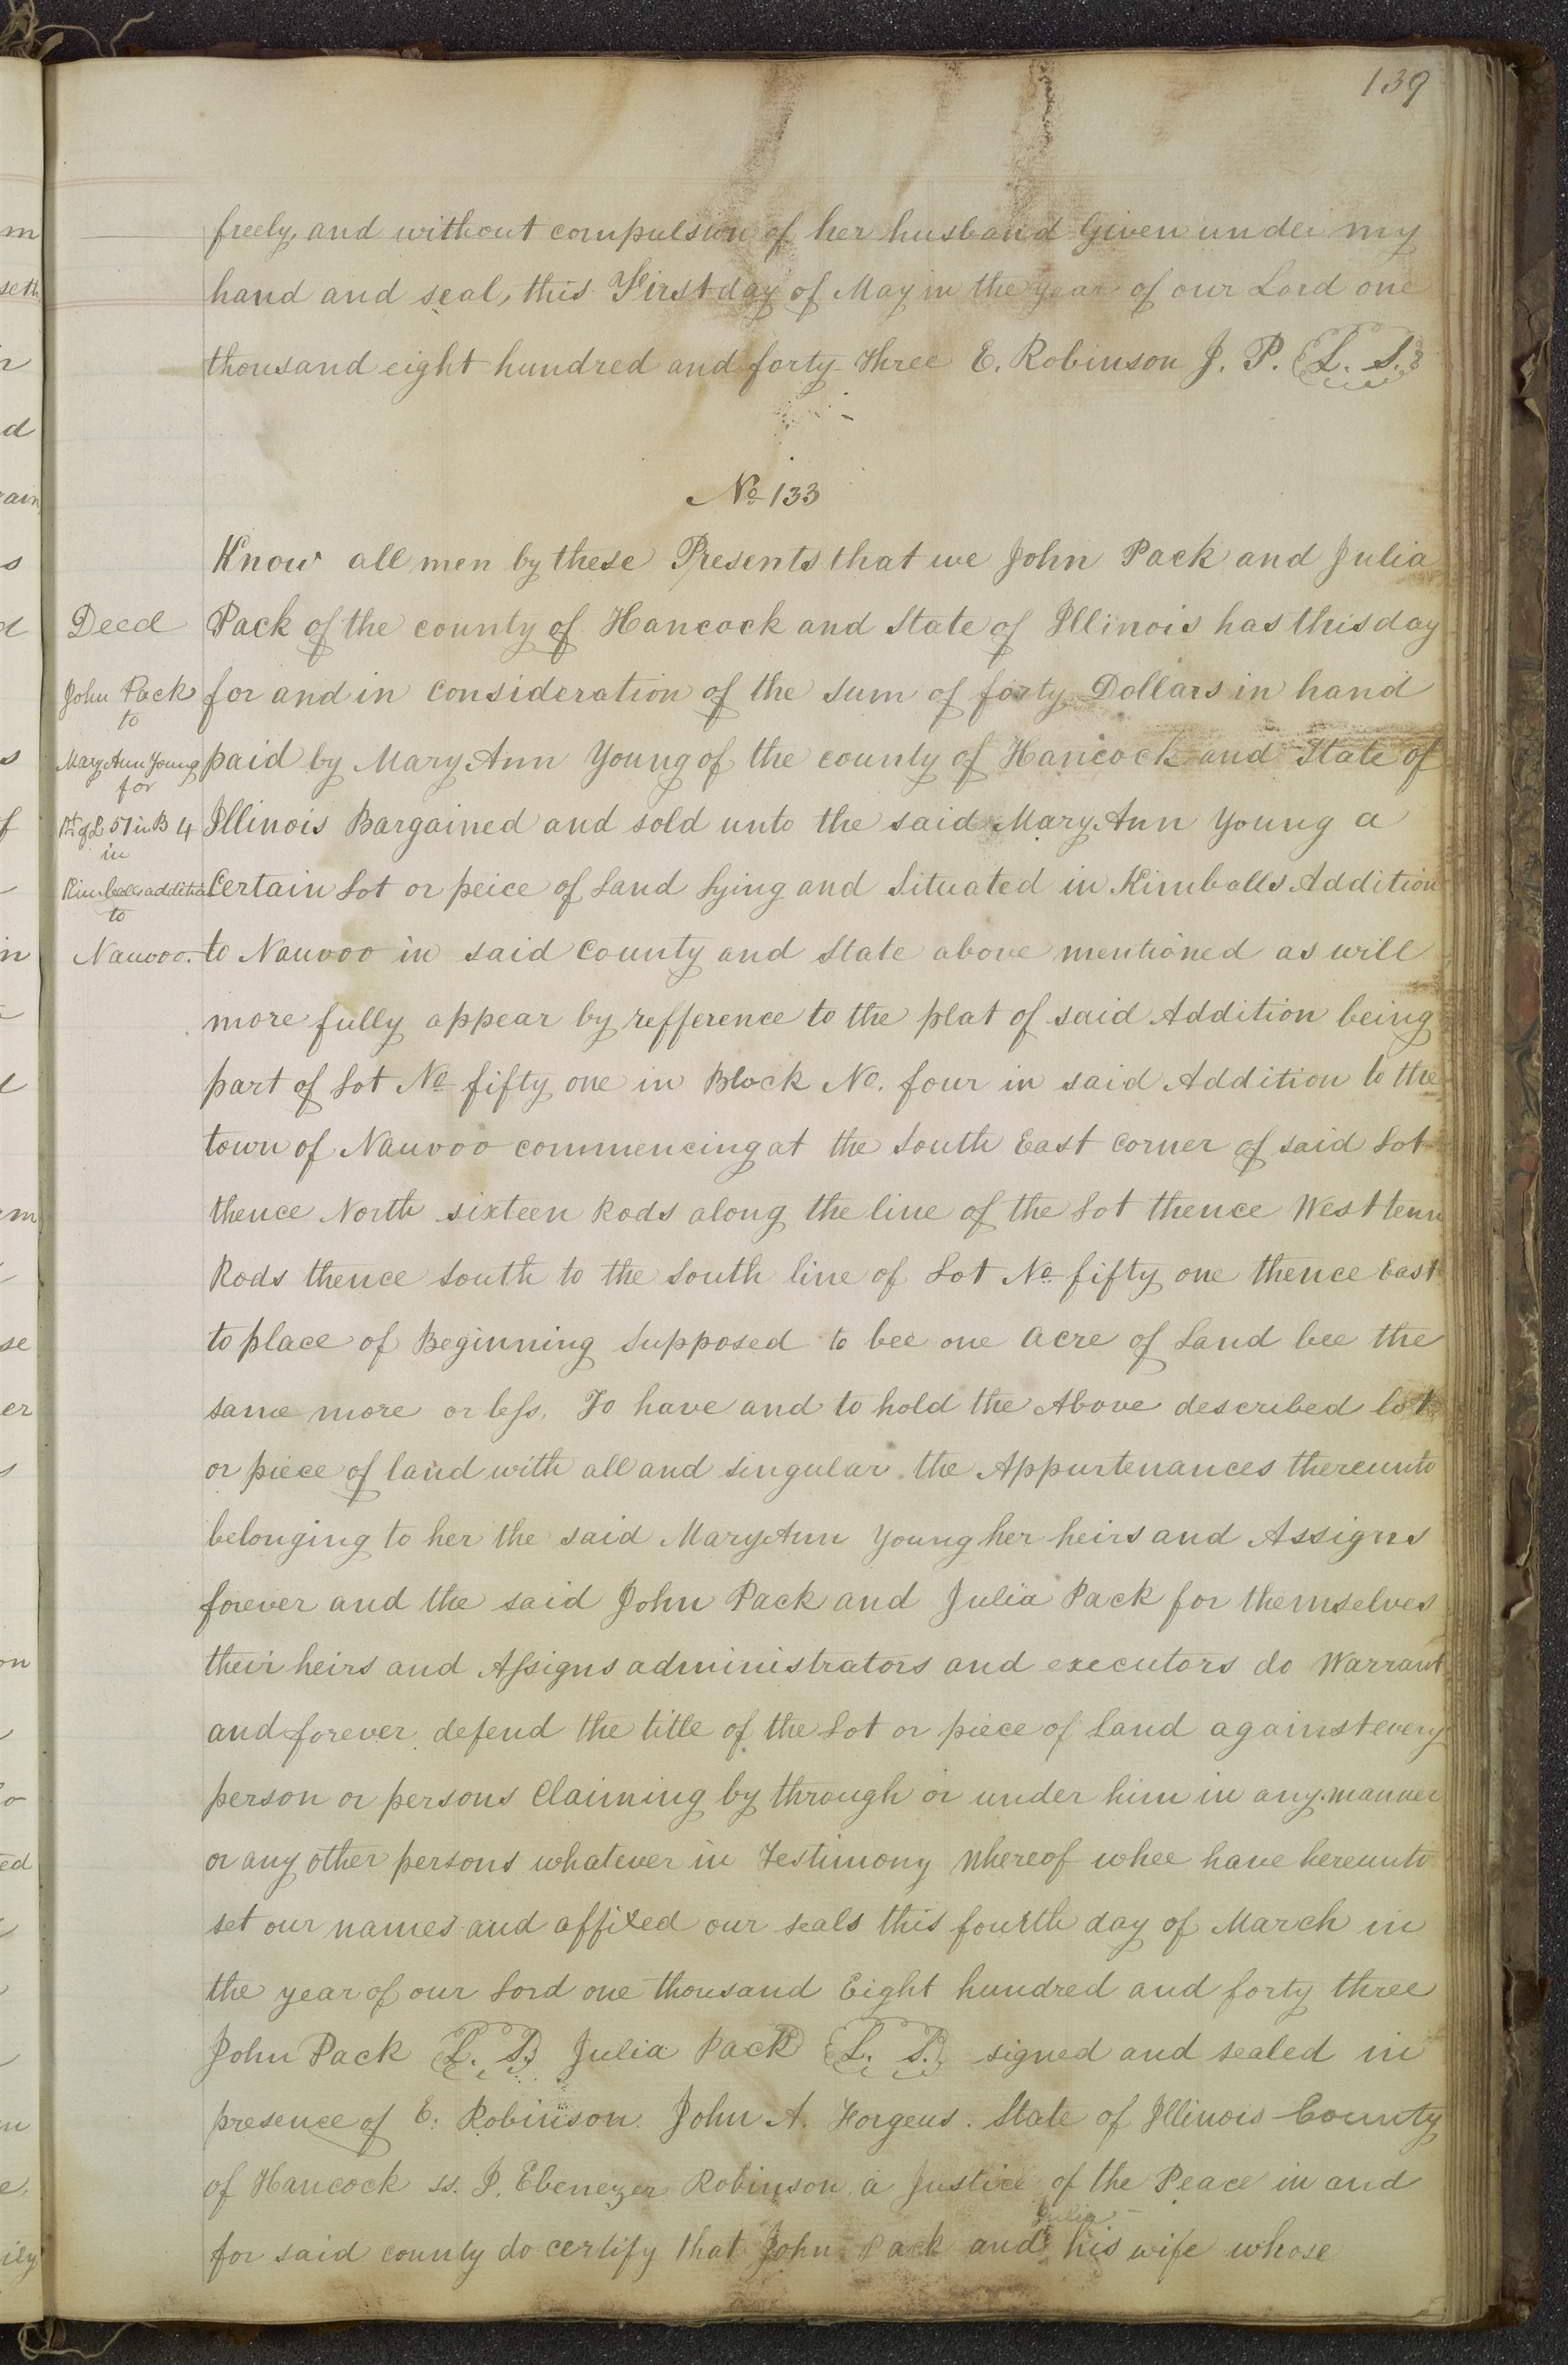 139
freely, and without compulsion of her husband Given under my
hand and seal, this First day of May in the year of our Lord one
thousand eight hundred and forty-three E. Robinson J. P. L. S.
No 133
Know all men by these Presents that we John Pack and Julia
Deed
Pack of the county of Hancock and State of Illinois has this day
John Pack
for and in consideration of the sum of forty Dollars in hand
to
Mary Ann Young
paid by Mary Ann Young of the county of Hancock and State of
for
Pt of L 51 in B 4
Illinois Bargained and sold unto the said Mary Ann Young a
in
Kimballs addition
Certain Lot or peice of Land Lying and Situated in Kimballs Addition
to
Nauvoo.
to Nauvoo in said County and State above mentioned as will
more fully appear by refference to the plat of said Addition being
part of Lot No fifty one in Block No. four in said Addition to the
town of Nauvoo commencing at the South East Corner of said Lot
thence North sixteen Rods along the line of the Lot thence West tenn
Rods thence South to the South line of Lot No fifty one thence East
to place of Beginning Supposed to bee one Acre of Land bee the
same more or less. To have and to hold the Above described lot
or piece of land with all and singular the Appurtenances thereunto
belonging to her the said Mary Ann Young her heirs and Assigns
forever and the said John Pack and Julia Pack for themselves
their heirs and Assigns administrators and executors do Warrant
and forever defend the title of the Lot or piece of Land against every
person or persons Claiming by through or under him in any manner
or any other persons whatever in Testimony Whereof whee have hereunto
set our names and affixed our seals this fourth day of March in
the year of our Lord one thousand Eight hundred and forty three
John Pack L. S. Julia Pack L. S. signed and sealed in
presence of E. Robinson. John A. Forgeus. State of Illinois County
of Hancock ss. I, Ebenezer Robinson a Justice of the Peace in and
Julia
for said county do certify that John Pack and his wife whose